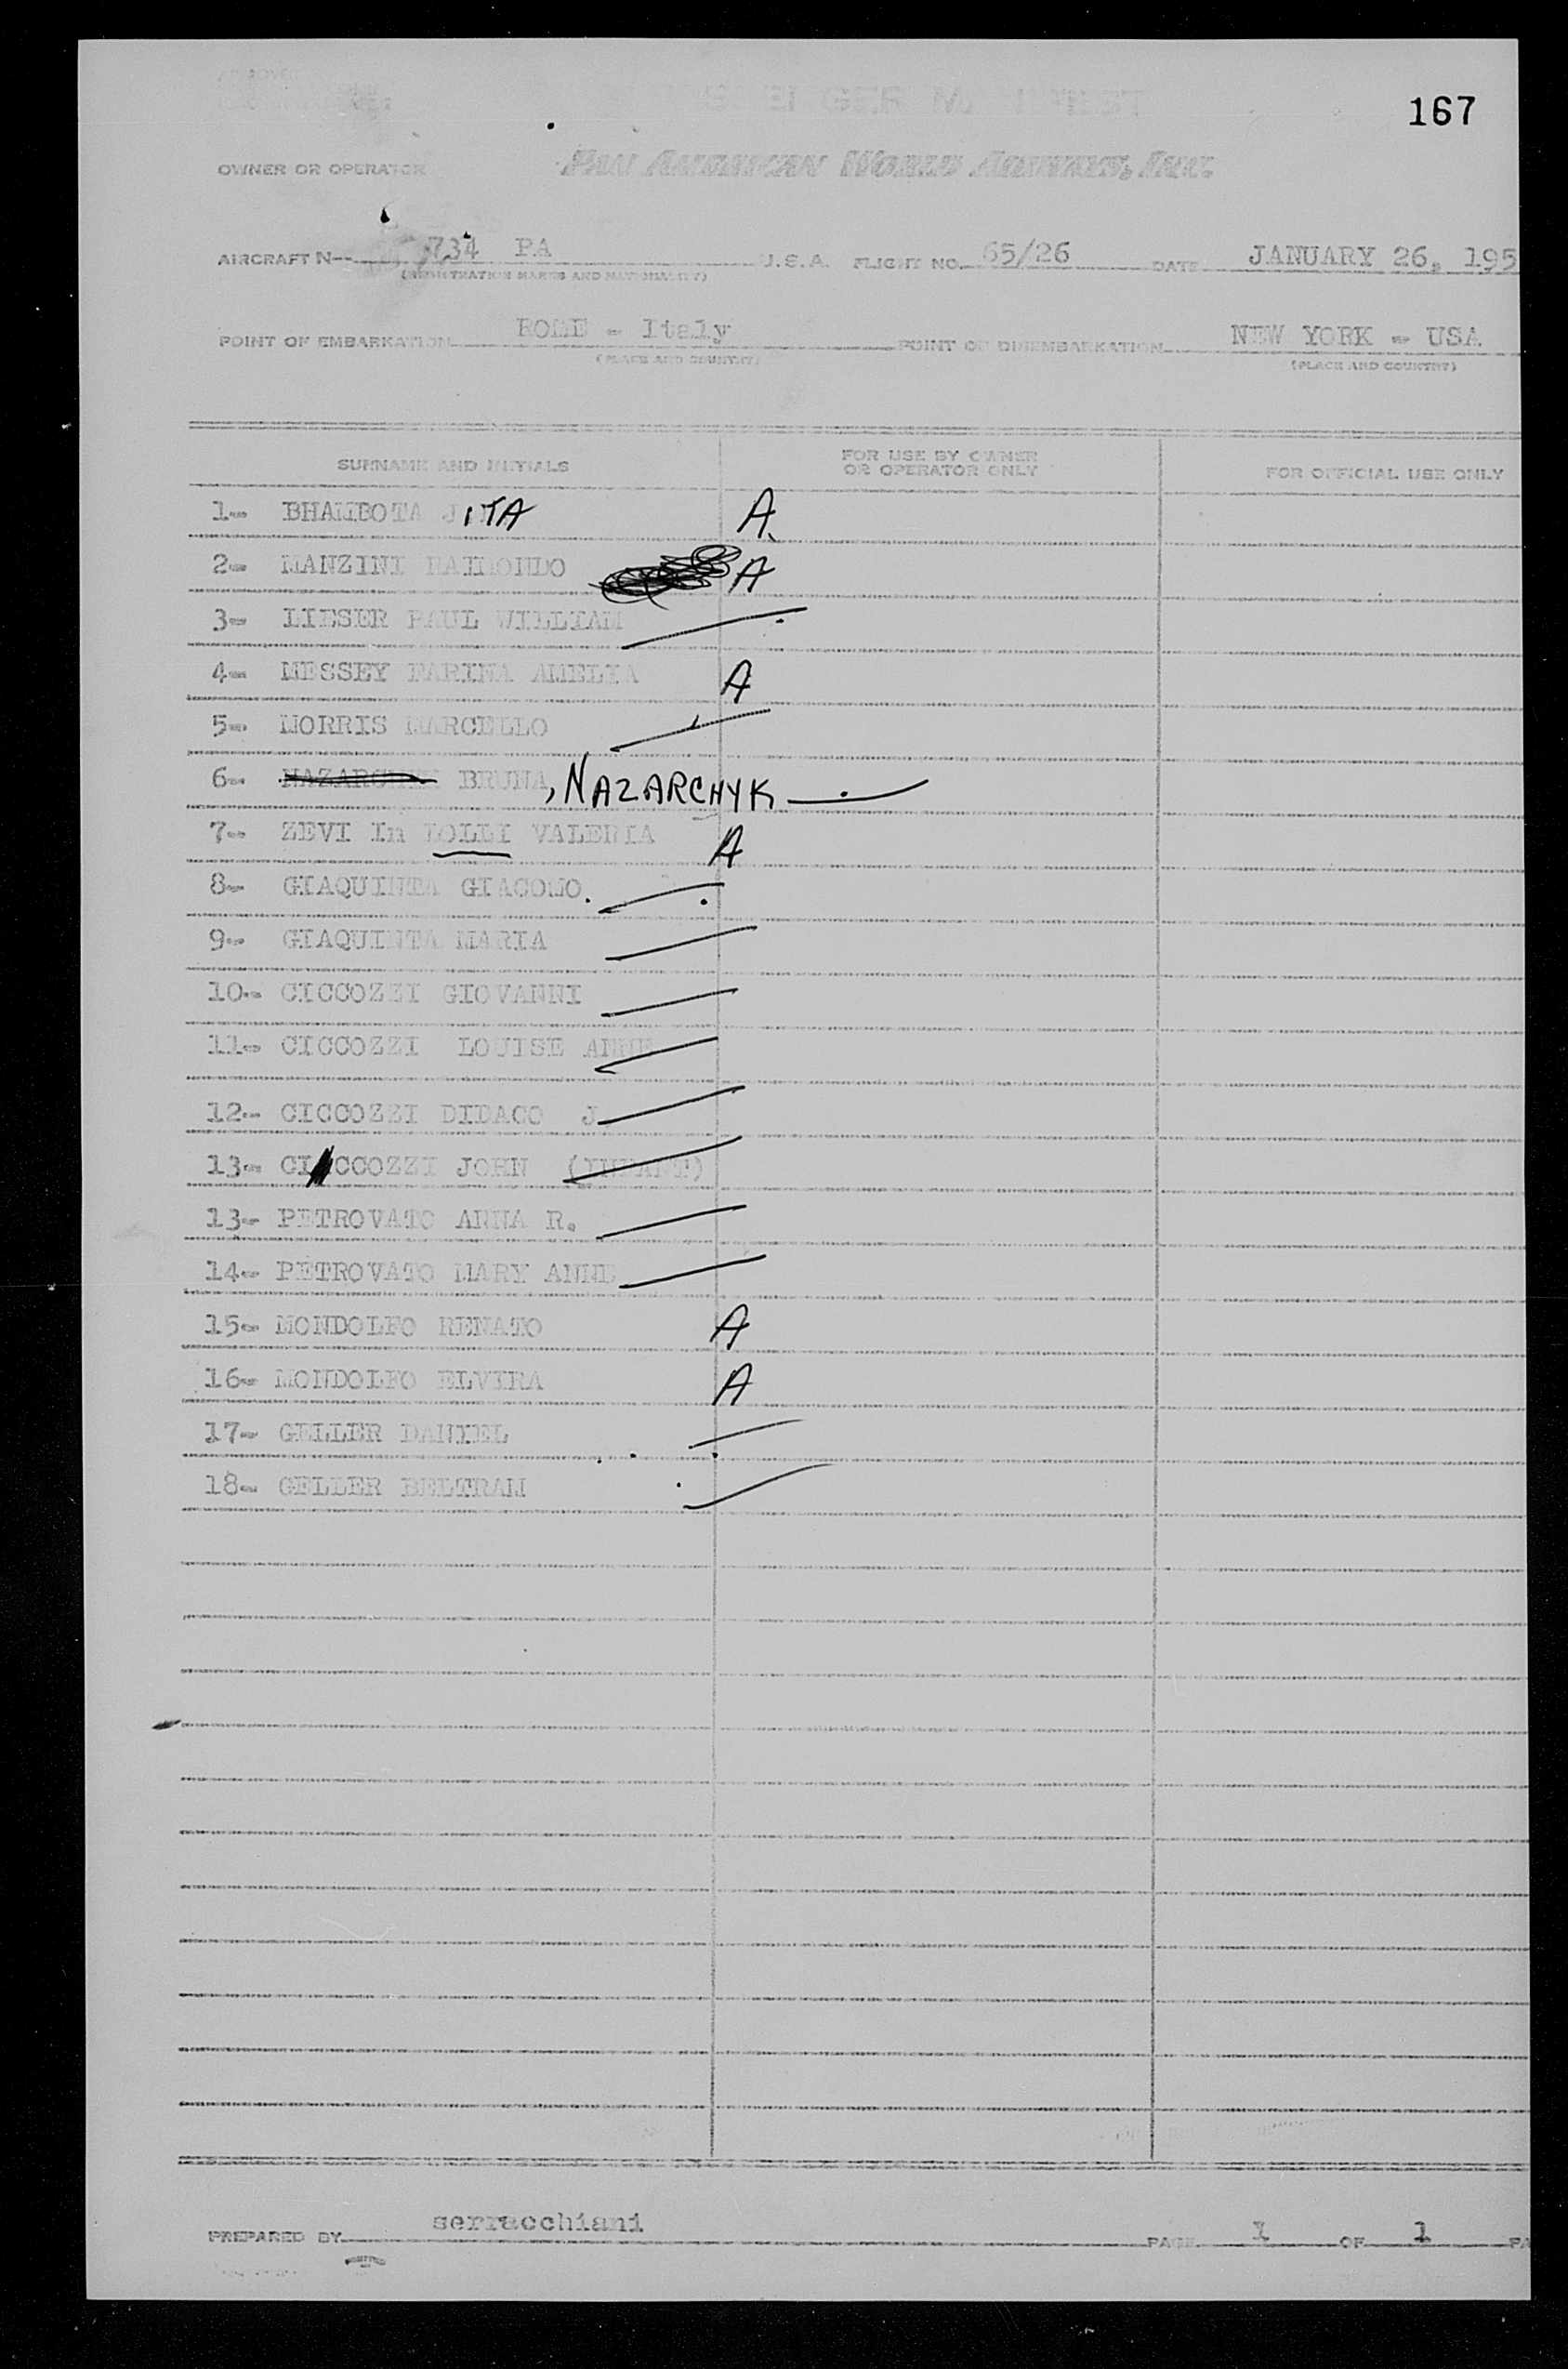 167
OWNER OR OPERATOR PAN AMERICAN WORLD AIRWAYS, INC.
AIRCRAFT N-- 734 PA U.S.A. FLIGHT NO. 65/26 DATE JANUARY 26, 195
(REGISTRATION MARKS AND NATIONALITY)
POINT OF EMBARKATION ROME - Italy POINT OF DISEMBARKATION NEW YORK - USA
(PLACE AND COUNTRY) (PLACE AND COUNTRY)
SURNAME AND INITIALS FOR USE BY OWNER OR OPERATOR ONLY FOR OFFICIAL USE ONLY
1- BHAMBOTA JITA A
2- MANZINI RAIMONDO A
3- LIESER PAUL WILLIAM
4- MESSEY FARINA AMELIA A
5- MORRIS MARCELLO
6- BRUNA, NAZARCHYK
7- ZEVI In VALERIA A
8- GIAQUINTA GIACOMO.
9- GIAQUINTA MARIA
10- CICCOZZI GIOVANNI
11- CICCOZZI LOUISE ANNE
12- CICCOZZI DIDACO J.
13- CICCOZZI JOHN (INFANT)
13- PETROVATO ANNA R.
14- PETROVATO MARY ANNE
15- MONDOLFO RENATO A
16- MONDOLFO ELVIRA A
17- GELLER DANIEL
18- GELLER BELTRAM
PREPARED BY serracchiani PAGE 1 OF 1 PA